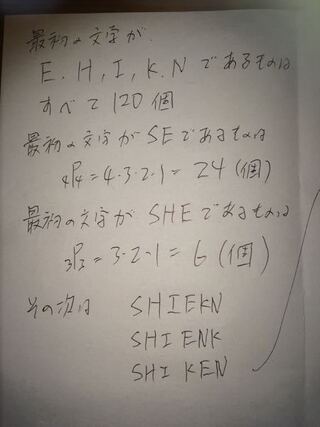 最初の文字が
E.H,I,K.Nであるものは
すべて120個
最初の文字がSEであるものは
₄P₄=4・3・2・1=24(個)
最初の文字がSHEであるものは
₃P₃=3・2・1=6(個)
その次は SHIEKN
SHIENK
SHIKEN